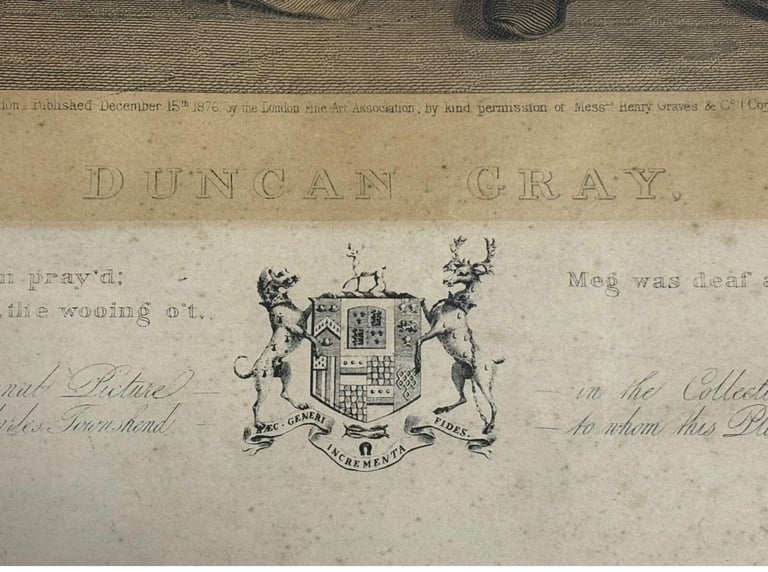 Published December 15th 1876, by the London Fine Art Association, by kind permission of Messrs Henry Graves & Co (
DUNCAN GRAY.
pray'd; Meg was deaf
the wooing o't,
Picture in the
Townshend to whom this
HÆC · GENERI INCREMENTA FIDES.